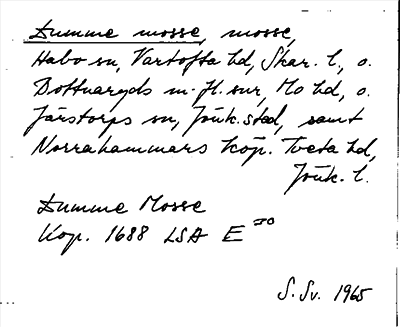 Dumme mosse, mosse,
Habo sn, Vartofta hd, Skar. l., o.
Bottnaryds m. fl. snr, Mo hd, o.
Järstorps sn, Jönk. stad, samt
Norrahammars köp. Tveta hd,
Jönk. l.
Dumme Mosse
Kop. 1688 LSA E 20
S. Sv. 1965